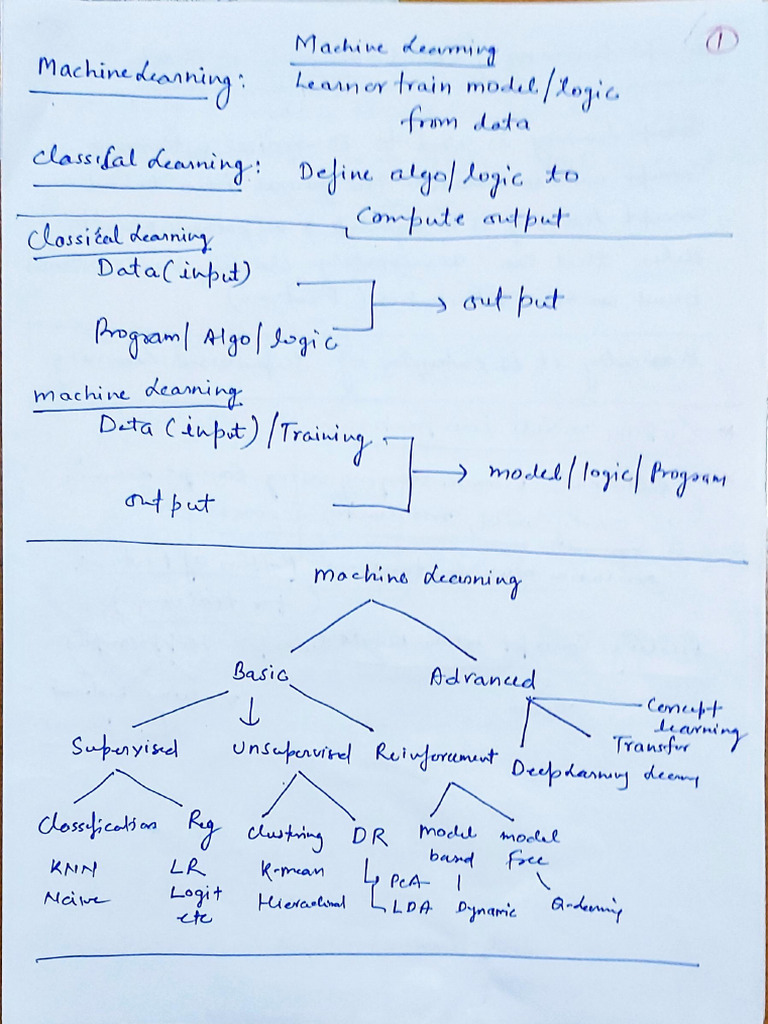 1
Machine Learning
Machine Learning: Learn or train model/logic
from data
Classical Learning: Define algo/logic to
Compute output
Classical Learning
Data (input)
→ output
Program/ Algo/logic
machine Learning
Data (input) /Training
→ model/logic/Program
output
Machine Learning
Basic Advanced
Concept
learning
Supervised Unsupervised Reinforcement Deep Learning Transfer
learning
Classification Reg Clustering DR Model based model Free
KNN LR K-mean PCA
Naive Logit Hierarchical LDA Dynamic Q-learning
etc